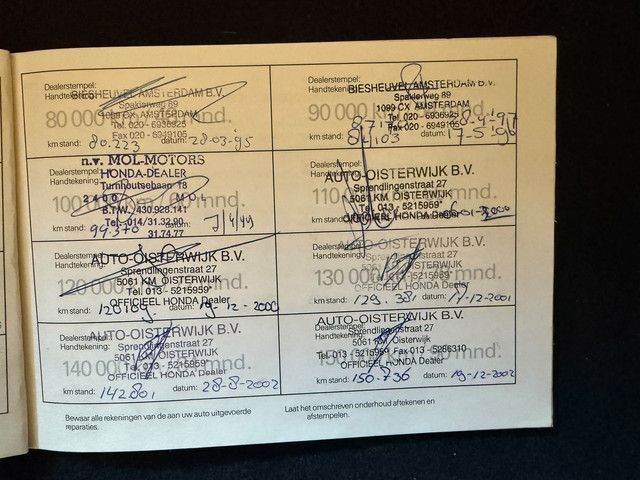 Dealerstempel:
Handtekening:
BIESHEUVEL AMSTERDAM B.V.
Spaklerweg 89
1099 CX AMSTERDAM
Tel. 020 - 6936925
Fax 020 - 6949105
80 000
mnd.
km stand: 80.223 datum: 28-03-95
Dealerstempel:
Handtekening:
BIESHEUVEL AMSTERDAM B.V.
Spaklerweg 89
1099 CX AMSTERDAM
Tel. 020 - 6936925
Fax 020 - 6949105
90 000
km stand: datum: 17-5-96
n.v. MOL-MOTORS
HONDA-DEALER
Turnhoutsebaan 18
2400 MOL
B.T.W. 430.928.141
Tel. 014/31.32.90
31.74.77
100
mnd.
km stand: datum:
AUTO-OISTERWIJK B.V.
Sprendlingenstraat 27
5061 KM OISTERWIJK
Tel. 013 - 5215959*
OFFICIEEL HONDA Dealer
110
mnd.
km stand:
Dealerstempel:
Handtekening:
AUTO-OISTERWIJK B.V.
Sprendlingenstraat 27
5061 KM OISTERWIJK
Tel. 013 - 5215959*
OFFICIEEL HONDA Dealer
120 000
mnd.
km stand: datum: 19-12-2000
AUTO-OISTERWIJK B.V.
Sprendlingenstraat 27
5061 KM OISTERWIJK
Tel. 013 - 5215959*
OFFICIEEL HONDA Dealer
130 000
mnd.
km stand: 129.381 datum: 17-12-2001
Dealerstempel:
Handtekening:
AUTO-OISTERWIJK B.V.
Sprendlingenstraat 27
5061 KM OISTERWIJK
Tel. 013 - 5215959*
OFFICIEEL HONDA Dealer
140 000
mnd.
km stand: 142.801 datum: 28-8-2002
AUTO-OISTERWIJK B.V.
Sprendlingenstraat 27
5061 KM Oisterwijk
Tel. 013 - 5215959 Fax 013 - 5286310
OFFICIEEL HONDA Dealer
mnd.
km stand: 150-736 datum: 19-12-2002
Bewaar alle rekeningen van de aan uw auto uitgevoerde
reparaties.
Laat het omschreven onderhoud aftekenen en
afstempelen.